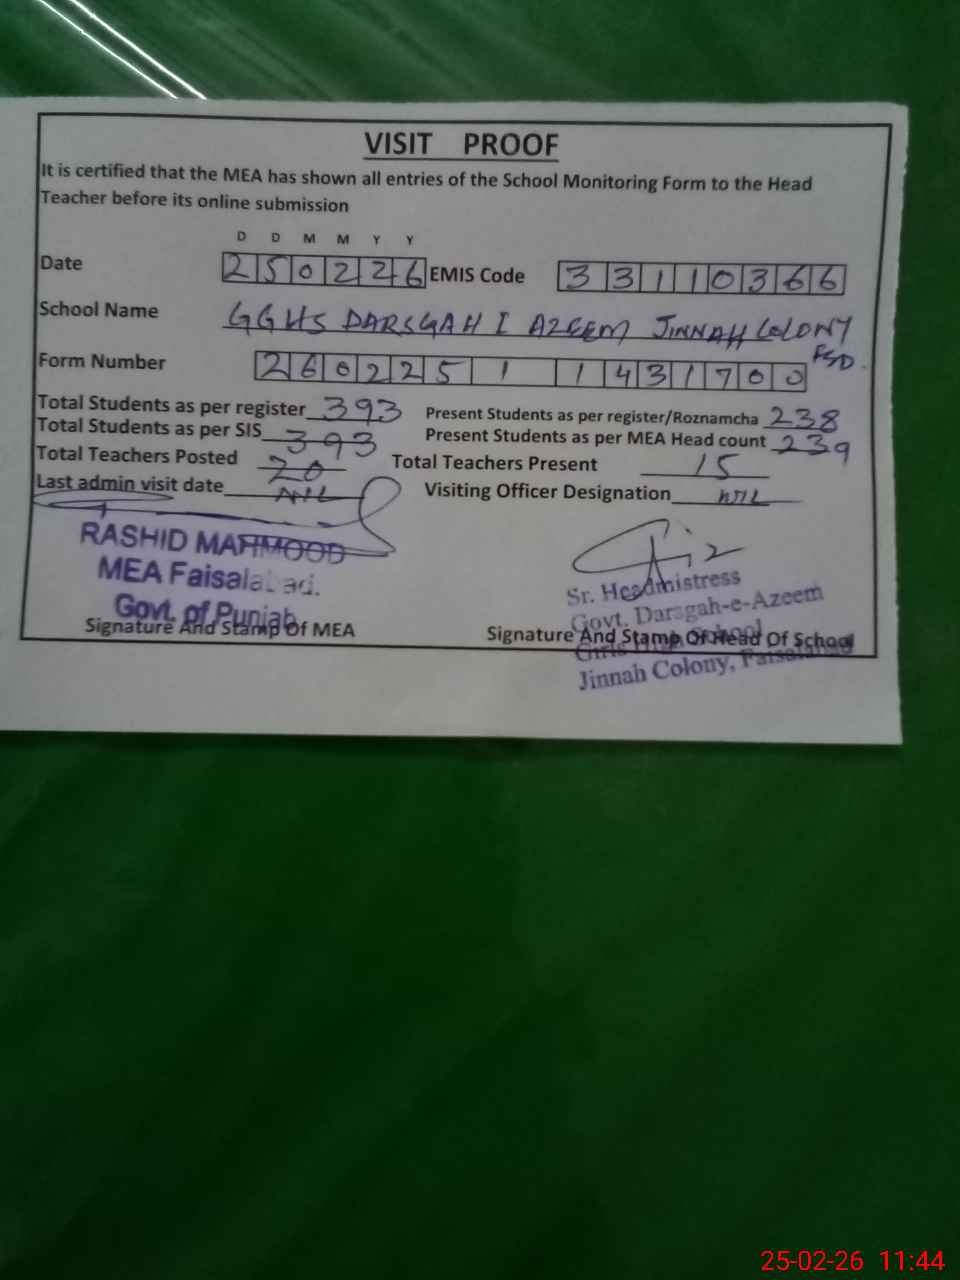 VISIT PROOF
It is certified that the MEA has shown all entries of the School Monitoring Form to the Head
Teacher before its online submission
D D M M Y Y
Date 250226 EMIS Code 33110366
School Name GGHS DARSGAH I AZEEM JINNAH COLONY
FSD.
Form Number 260225 1 1431700
Total Students as per register 393 Present Students as per register/Roznamcha 238
Total Students as per SIS 393 Present Students as per MEA Head count 239
Total Teachers Posted 20 Total Teachers Present 15
Last admin visit date NIL Visiting Officer Designation NIL
RASHID MAHMOOD
MEA Faisalabad.
Govt. of Punjab
Signature And Stamp Of MEA
Sr. Headmistress
Govt. Darsgah-e-Azeem
Girls High School
Jinnah Colony, Faisalabad
Signature And Stamp Of Head Of School
25-02-26 11:44